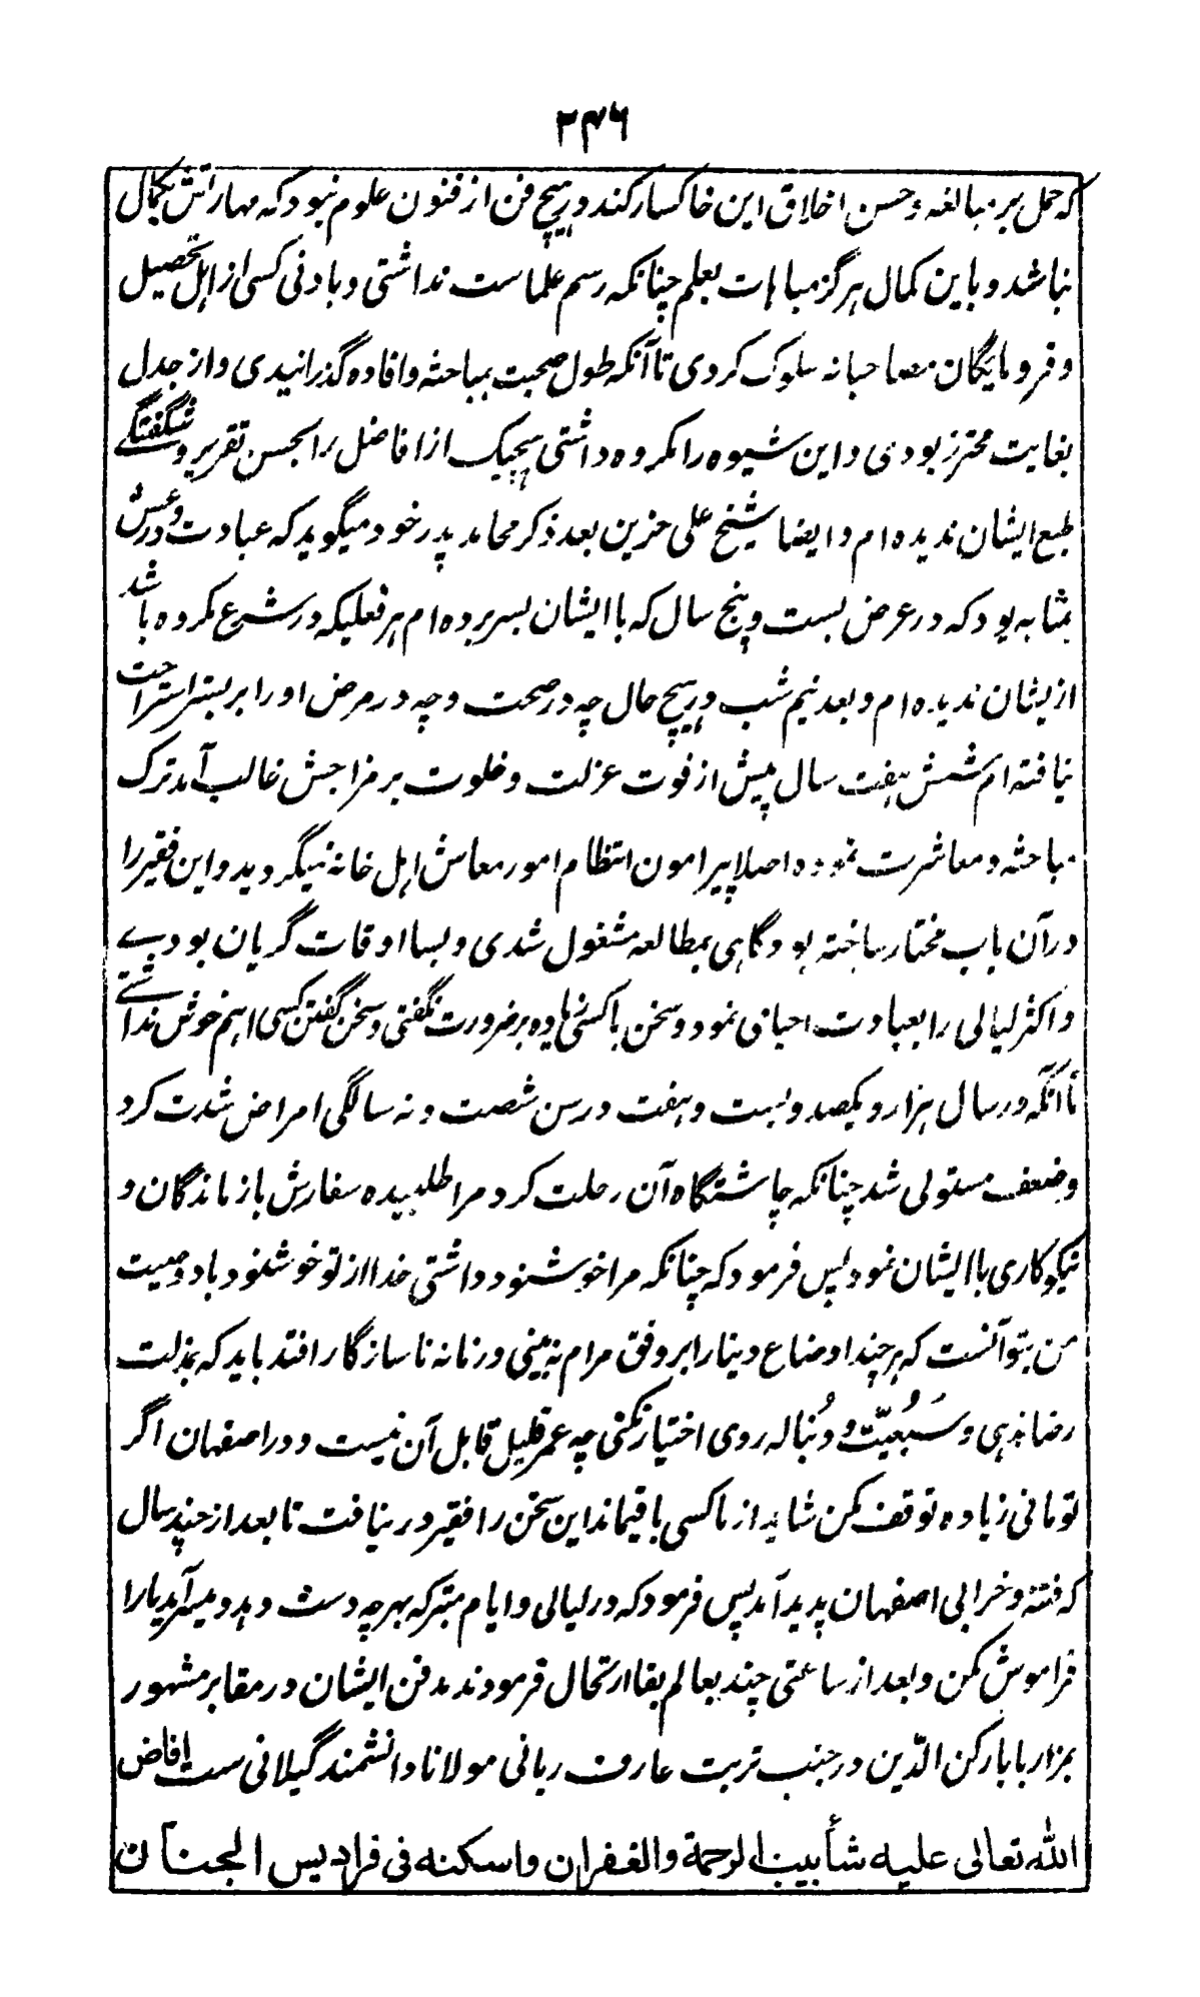 ۲۴۶
که حمل بر مبالغه و حسن اخلاق این خاکسار کند در هیچ فن از فنون علوم نبود که مهارتش بکمال
نباشد و باین کمال هرگز مباهات بعلم چنانکه رسم علماست نداشتی و با دنی کسی از اهل تحصیل
و فرومایگان مصاحبانه سلوک کردی تا آنکه طول صحبت بمباحثه و افاده گذرانیدی و از جدل
بغایت محترز بودی و این شیوه را مکروه داشتی هیچیک از افاضل را بحسن تقریر و شگفتگے
طبع ایشان ندیده ام و ایضا شیخ علی حزین بعد ذکر محامد پدر خود میگوید که عبادت و ورعش
بمثابه بود که در عرض بست و پنج سال که با ایشان بسر برده ام هر فعلیکه در شرع مکروه باشد
ازیشان ندیده ام و بعد نیم شب در هیچ حال چه در صحت و چه در مرض او را بر بستر استراحت
نیافته ام شش هفت سال پیش از فوت عزلت و خلوت بر مزاجش غالب آمد ترک
مباحثه و معاشرت نموده اصلا پیرامون انتظام امور معاش اهل خانه نمیگردید و این فقیر را
در آن باب مختار ساخته بود گاهی بمطالعه مشغول شدی و بسا اوقات گریان بودے
و اکثر لیالی را بعبادت احیا می نمود و سخن با کسی زیاده بر ضرورت نگفتی و سخن گفتن کسی را هم خوش نداشتے
تا آنکه در سال هزار و یکصد و بست و هفت در سن شصت و نه سالگی امراض شدت کرد
و ضعف مستولی شد چنانکه چاشتگاه آن رحلت کرد مرا طلبیده سفارش بازماندگان و
نیکوکاری با ایشان نمود پس فرمود که چنانکه مرا خوشنود داشتی خدا از تو خوشنود باد وصیت
من بتو آنست که هر چند اوضاع دنیا را بر وفق مرام نه بینی و زمانه ناسازگار افتد باید که بمذلت
رضا ندهی و سَبُعیّت و دُنباله روی اختیار نکنی چه عمر قلیل قابل آن نیست و در اصفهان اگر
توانی زیاده توقف مکن شاید از ما کسی باقیماند این سخن را فقیر در نیافت تا بعد از چند سال
که فتنه و خرابی اصفهان پدید آمد پس فرمود که در لیالی و ایام متبرکه بهرچه دست دهد و میسر آید یار ما را
فراموش مکن و بعد از ساعتی چند بعالم بقا ارتحال فرمودند مدفن ایشان در مقابر مشهور
بمزار بابا رکن الدّین در جنب تربت عارف ربانی مولانا دانشمند گیلانی ست افاض
الله تعالی علیه شأبیب الرحمة والغفران واسکنه فی فرادیس الجنان